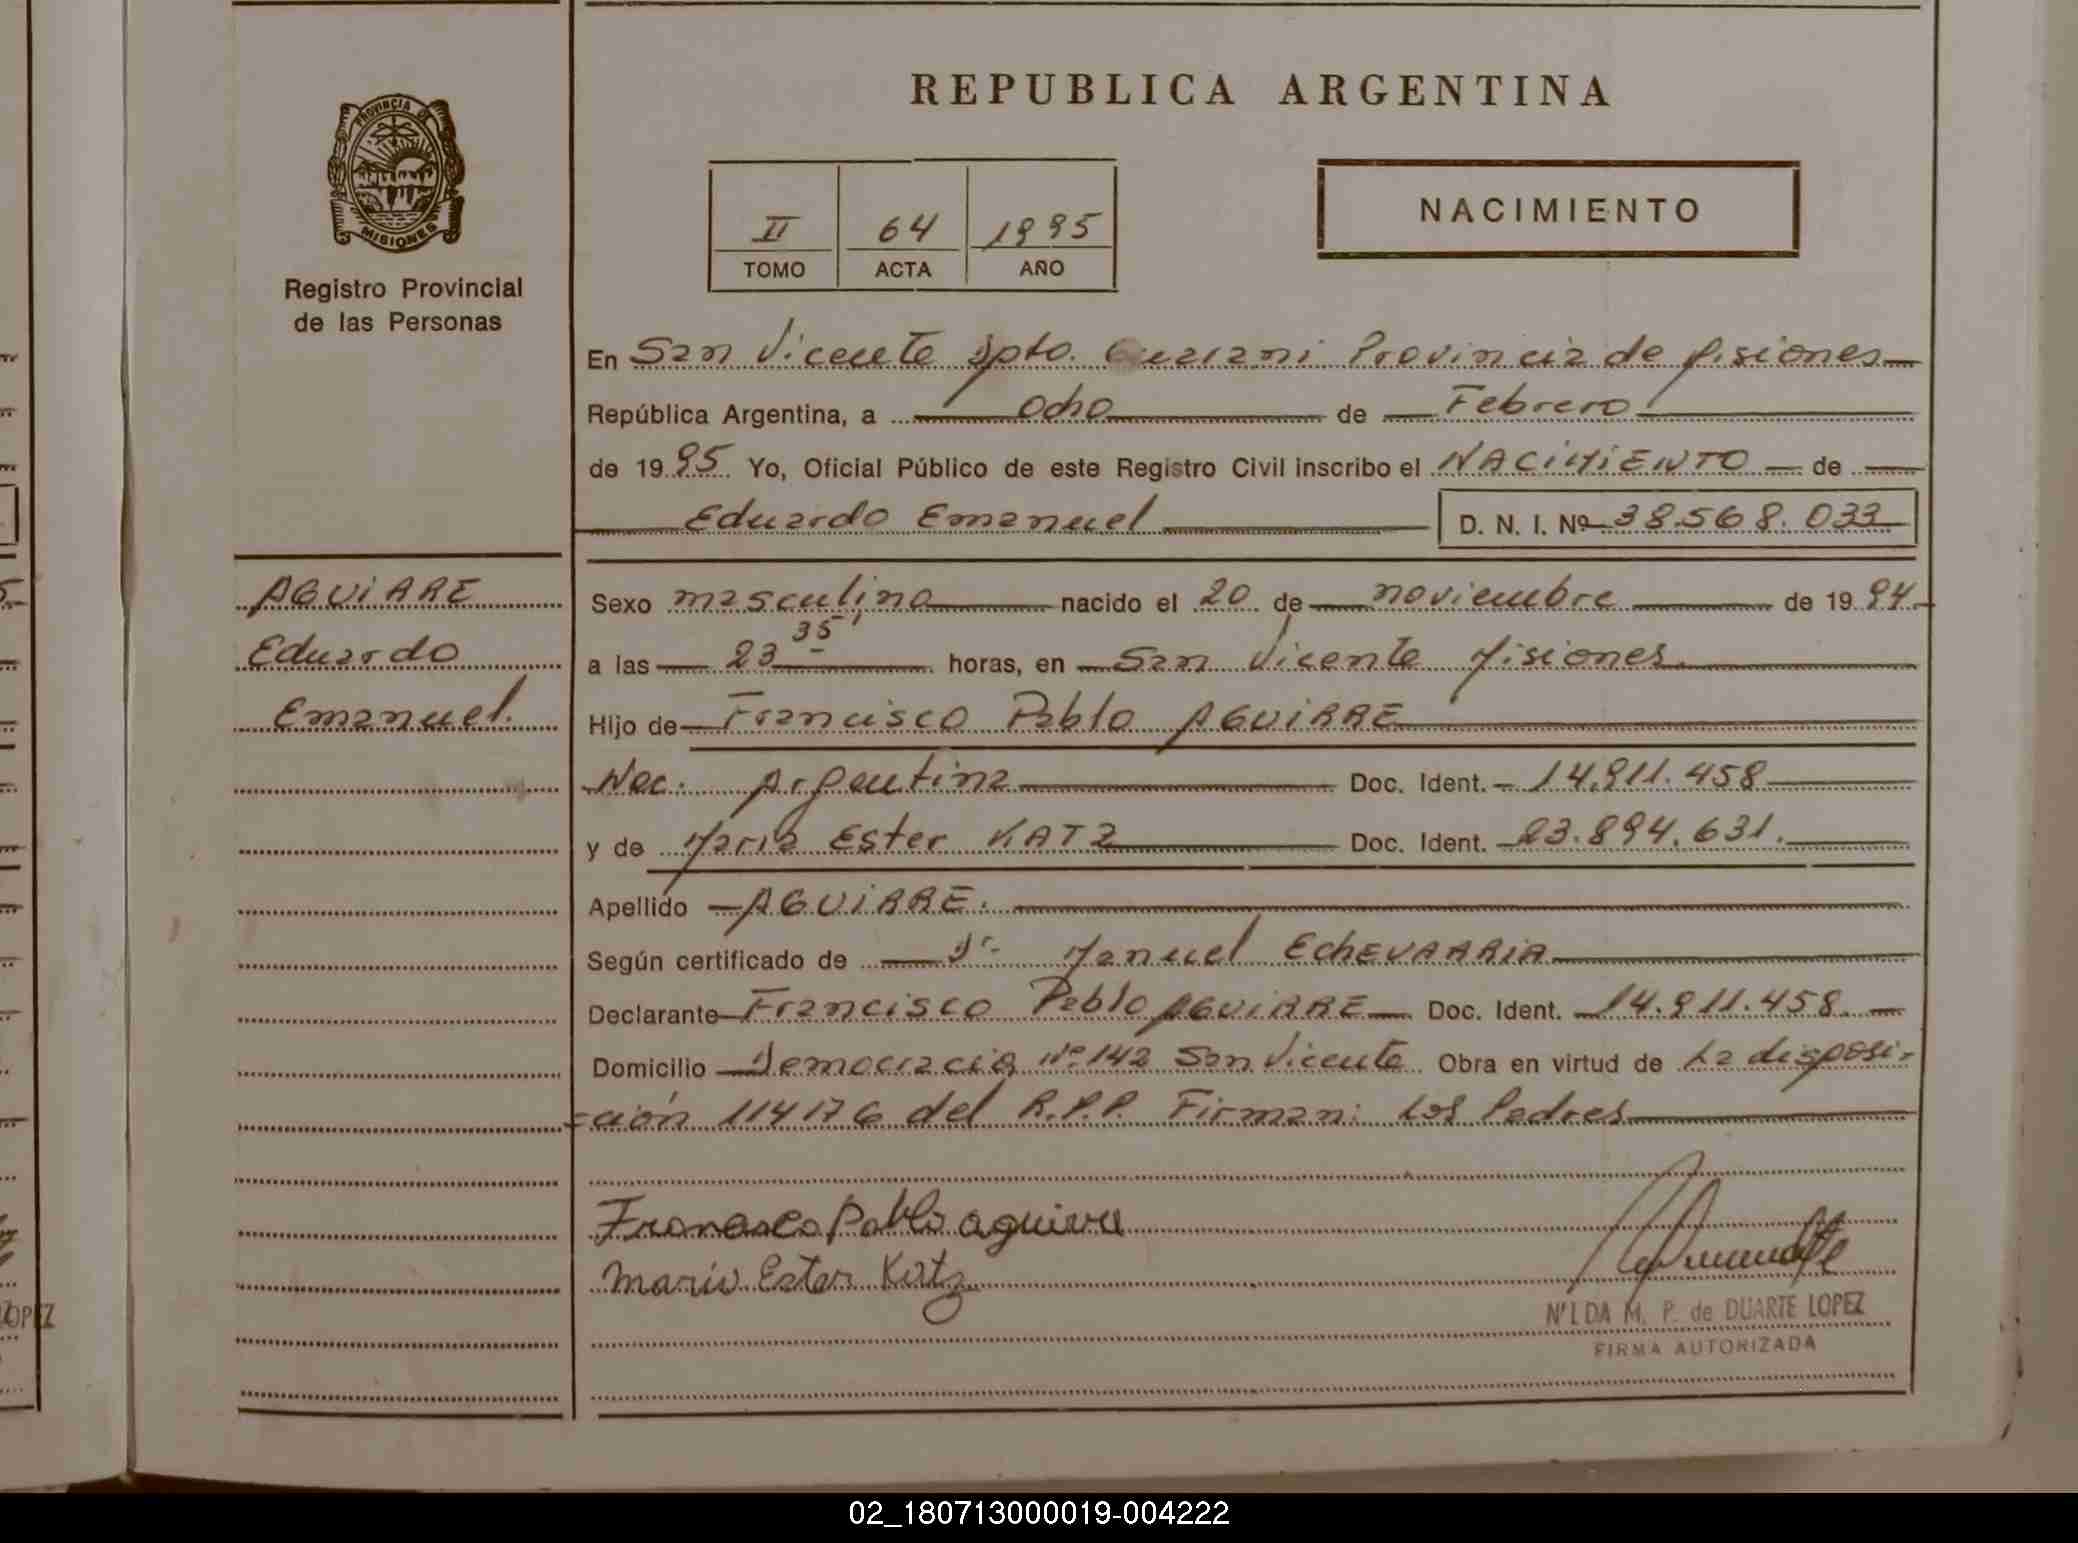 REPUBLICA ARGENTINA
PROVINCIA DE
MISIONES
Registro Provincial
de las Personas
II 64 1995
TOMO ACTA AÑO
NACIMIENTO
En San Vicente Dpto. Guarani Provincia de Misiones
República Argentina, a ocho de Febrero
de 1995 Yo, Oficial Público de este Registro Civil inscribo el NACIMIENTO de
Eduardo Emanuel D. N. I. Nº 38.568.033
AGUIRRE
Eduardo
Emanuel.
Sexo masculino nacido el 20 de noviembre de 1994
a las 23 35' horas, en San Vicente Misiones.
Hijo de Francisco Pablo AGUIRRE
Nac. Argentina Doc. Ident. 14.911.458
y de Maria Ester KATZ Doc. Ident. 23.894.631.
Apellido AGUIRRE.
Según certificado de Dr. Manuel EChEVARRIA
Declarante Francisco Pablo AGUIRRE Doc. Ident. 14.911.458.
Domicilio Democracia Nº 142 San Vicente Obra en virtud de La disposi-
-ción 114176 del R.P.P. Firman: Los Padres
Francisco Pablo aguirre
Maria Ester Katz
N'LDA M. P. de DUARTE LOPEZ
FIRMA AUTORIZADA
LOPEZ
02_180713000019-004222